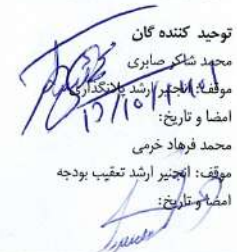 توحید کننده گان
محمد شاکر صابری
موقف: انجنیر ارشد پلانگذاری
امضا و تاریخ:
محمد فرهاد خرمی
موقف: انجنیر ارشد تعقیب بودجه
امضا و تاریخ: